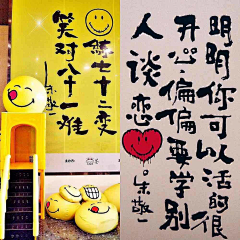 練七十二变
笑对八十一难
朱敬一
明明你可以活的很
开心偏偏要学别
人谈恋
朱敬一